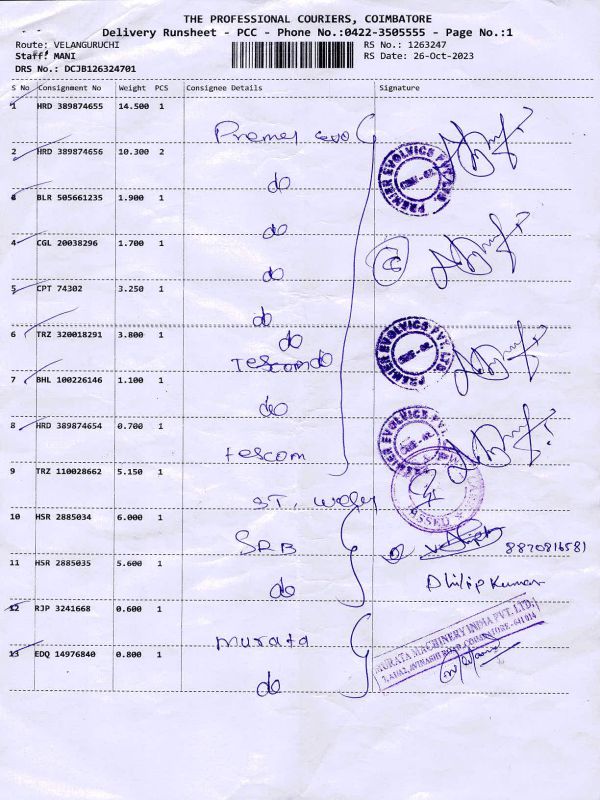 THE PROFESSIONAL COURIERS, COIMBATORE
Delivery Runsheet - PCC - Phone No.:0422-3505555 - Page No.:1
Route: VELANGURUCHI RS No.: 1263247
Staff: MANI RS Date: 26-Oct-2023
DRS No.: DCJB126324701
S No Consignment No Weight PCS Consignee Details Signature
1 HRD 389874655 14.500 1
Premer evo
2 HRD 389874656 10.300 2
PREMIER EVOLVICS PVT. LTD.
do
3 BLR 505661235 1.900 1
do
4 CGL 20038296 1.700 1
do
5 CPT 74302 3.250 1
do
do
6 TRZ 320018291 3.800 1
PREMIER EVOLVICS PVT. LTD.
Tescom do
7 BHL 100226146 1.100 1
do
8 HRD 389874654 0.700 1
PREMIER EVOLVICS PVT.
tescom
9 TRZ 110028662 5.150 1
ST.
10 HSR 2885034 6.000 1
SRB 8870816581
11 HSR 2885035 5.600 1
do Dhilip Kumar
12 RJP 3241668 0.600 1
murata
MURATA MACHINERY INDIA PVT. LTD.
AVINASHI ROAD, COIMBATORE - 641 014
13 EDQ 14976840 0.800 1
do